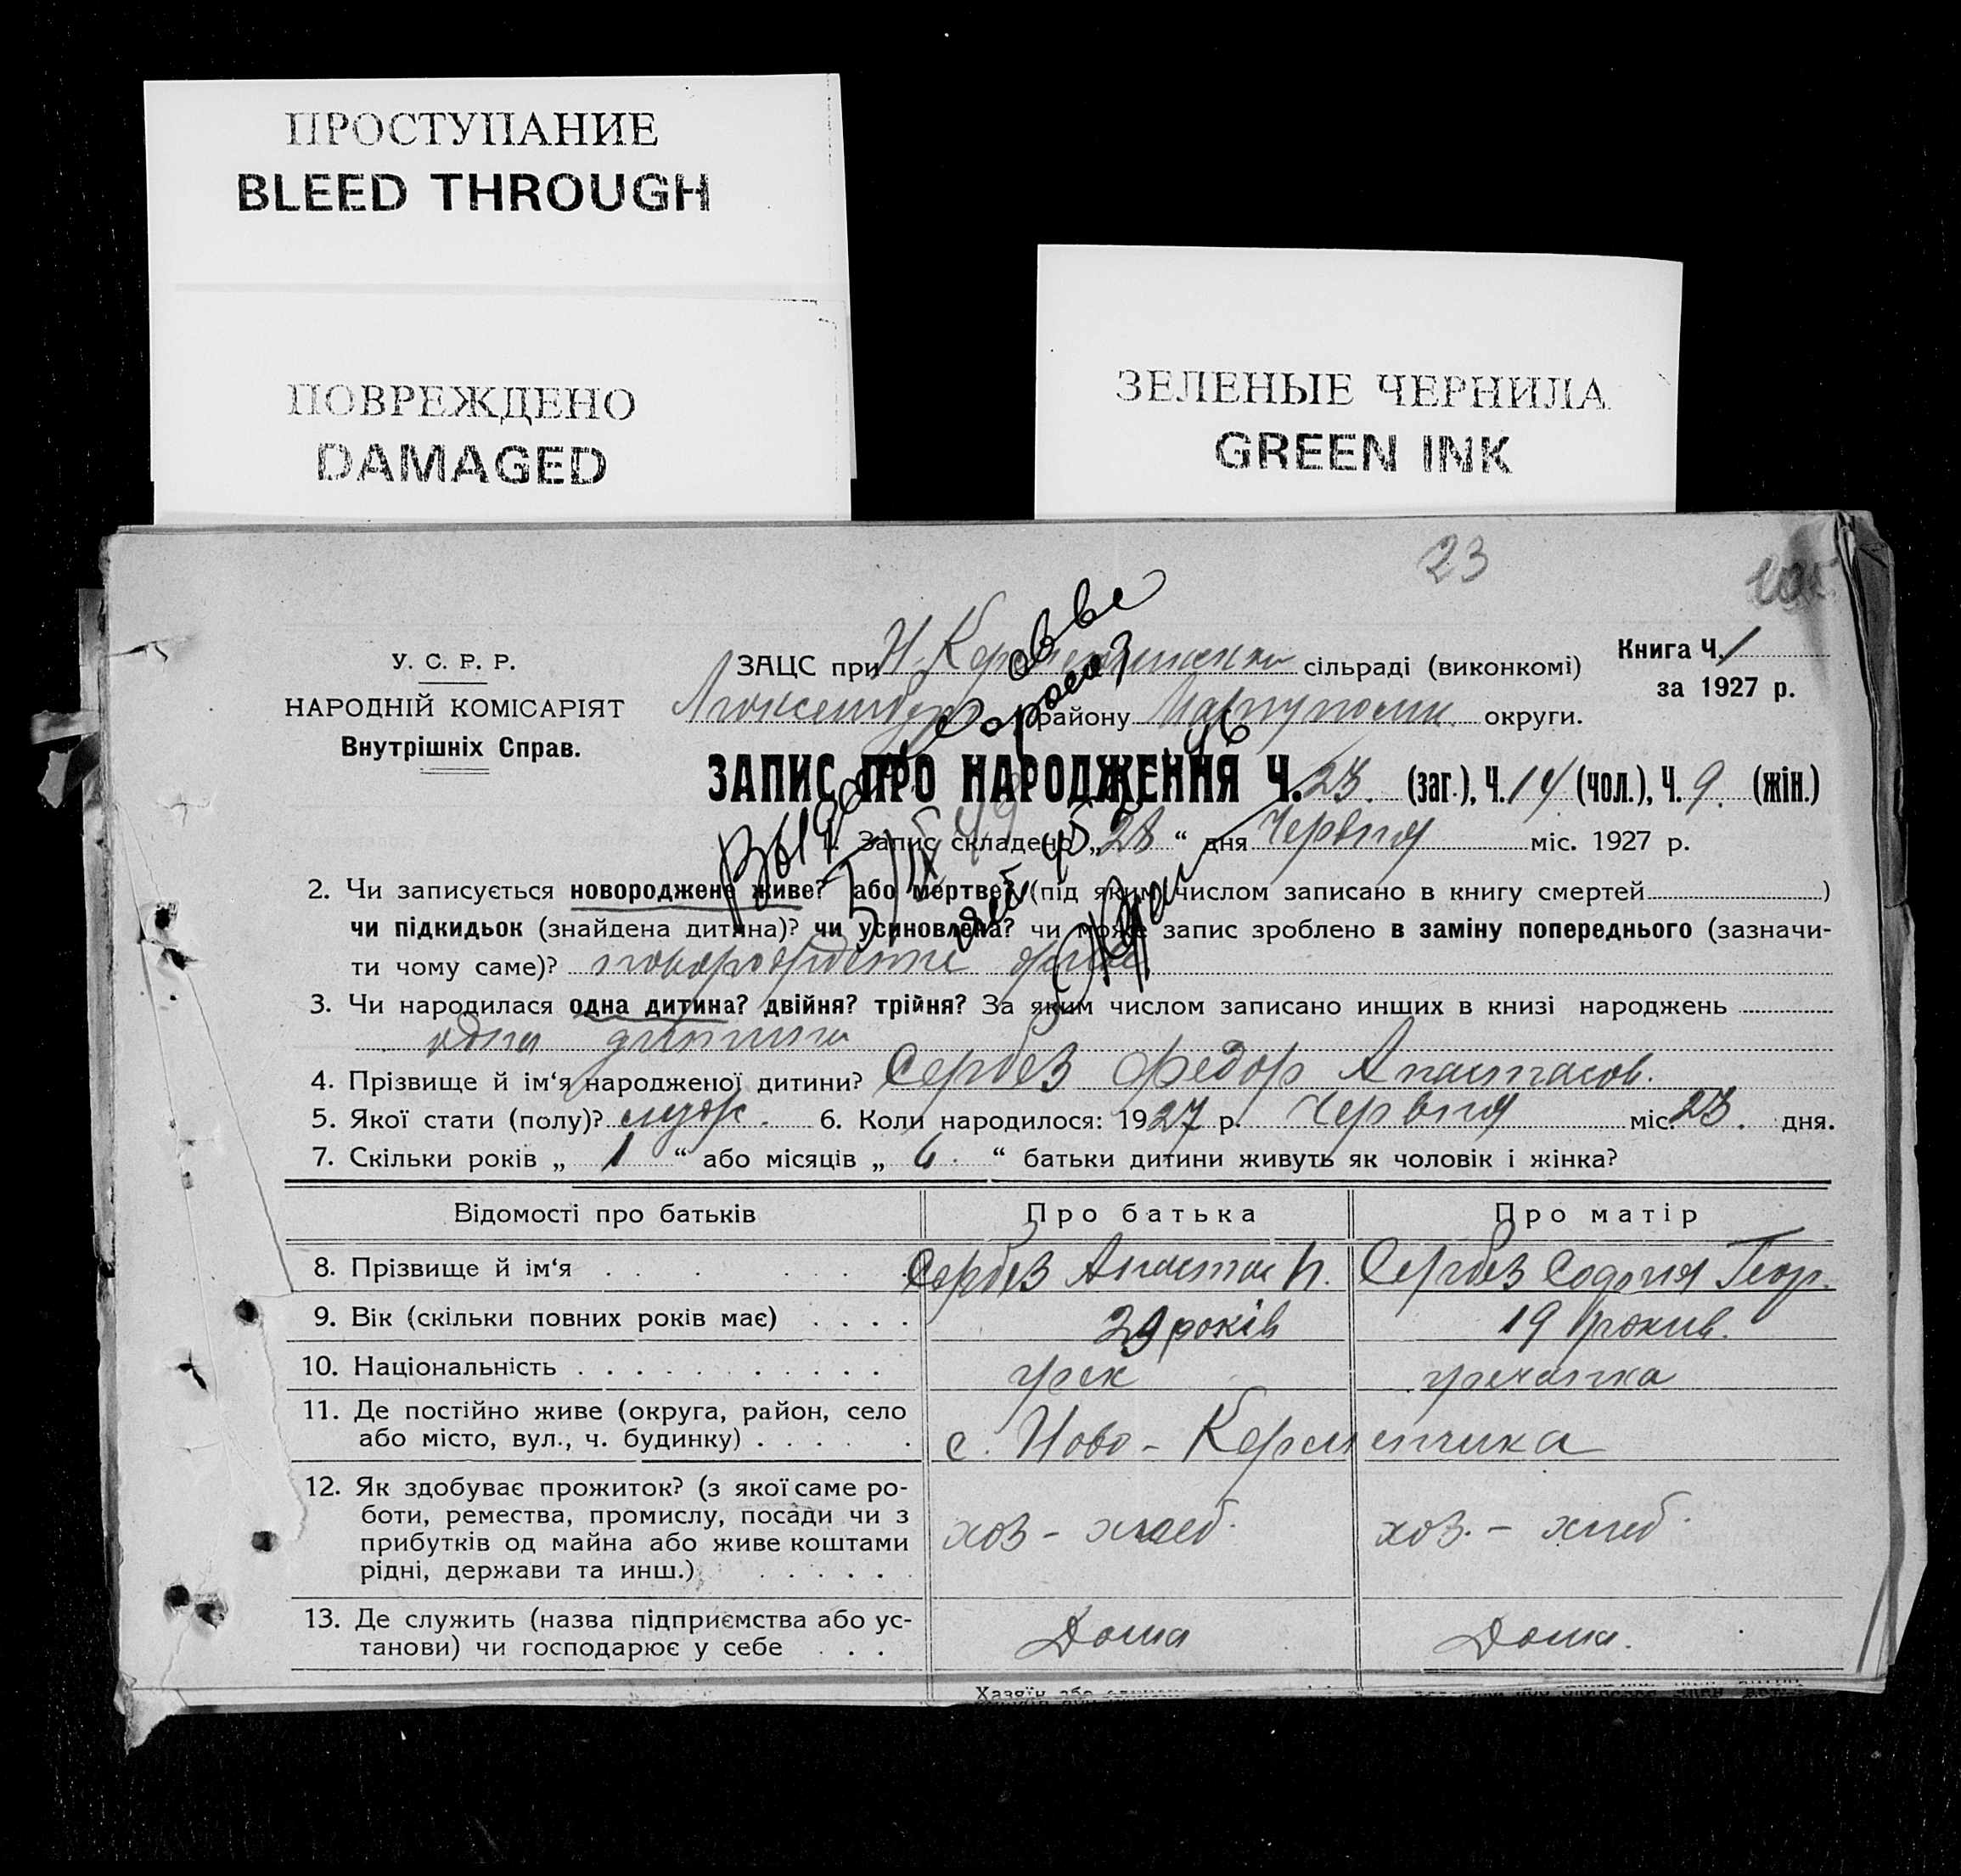 ПРОСТУПАНИЕ
BLEED THROUGH
ПОВРЕЖДЕНО
DAMAGED
ЗЕЛЕНЫЕ ЧЕРНИЛА
GREEN INK
23
У. С. Р. Р.
НАРОДНІЙ КОМІСАРІЯТ
Внутрішніх Справ.
ЗАЦС при Н-Керменчикски сільраді (виконкомі)
Люксембур району Маріупольск. округи.
Книга Ч. 1
за 1927 р.
ЗАПИС ПРО НАРОДЖЕННЯ Ч. 23. (заг.), Ч. 14 (чол.), Ч. 9. (жін.)
1. Запис складено „28“ дня Червня міс. 1927 р.
2. Чи записується новороджене живе? або мертве? (під яким числом записано в книгу смертей )
чи підкидьок (знайдена дитина)? чи усиновлена? чи може запис зроблено в заміну попереднього (зазначи-
ти чому саме)? новорожденне живе
3. Чи народилася одна дитина? двійня? трійня? За яким числом записано инших в книзі народжень
одна дитина
4. Прізвище й ім‘я народженої дитини? Сербез Федор Анастасов.
5. Якої стати (полу)? муж. 6. Коли народилося: 1927 р. Червня міс. 23. дня.
7. Скільки років „ 1 “ або місяців „ 6. “ батьки дитини живуть як чоловік і жінка?
Відомості про батьків Про батька Про матір
8. Прізвище й ім‘я Сербез Анастас Н. Сербез Софія Геор.
9. Вік (скільки повних років має) 29 років 19 рокив.
10. Національність грек гречанка
11. Де постійно живе (округа, район, село
або місто, вул., ч. будинку) с. Ново-Керменчика
12. Як здобуває прожиток? (з якої саме ро-
боти, ремества, промислу, посади чи з
прибутків од майна або живе коштами
рідні, держави та инш.) хоз-хлеб. хоз.-хлеб.
13. Де служить (назва підприємства або ус-
танови) чи господарює у себе Дома Дома.